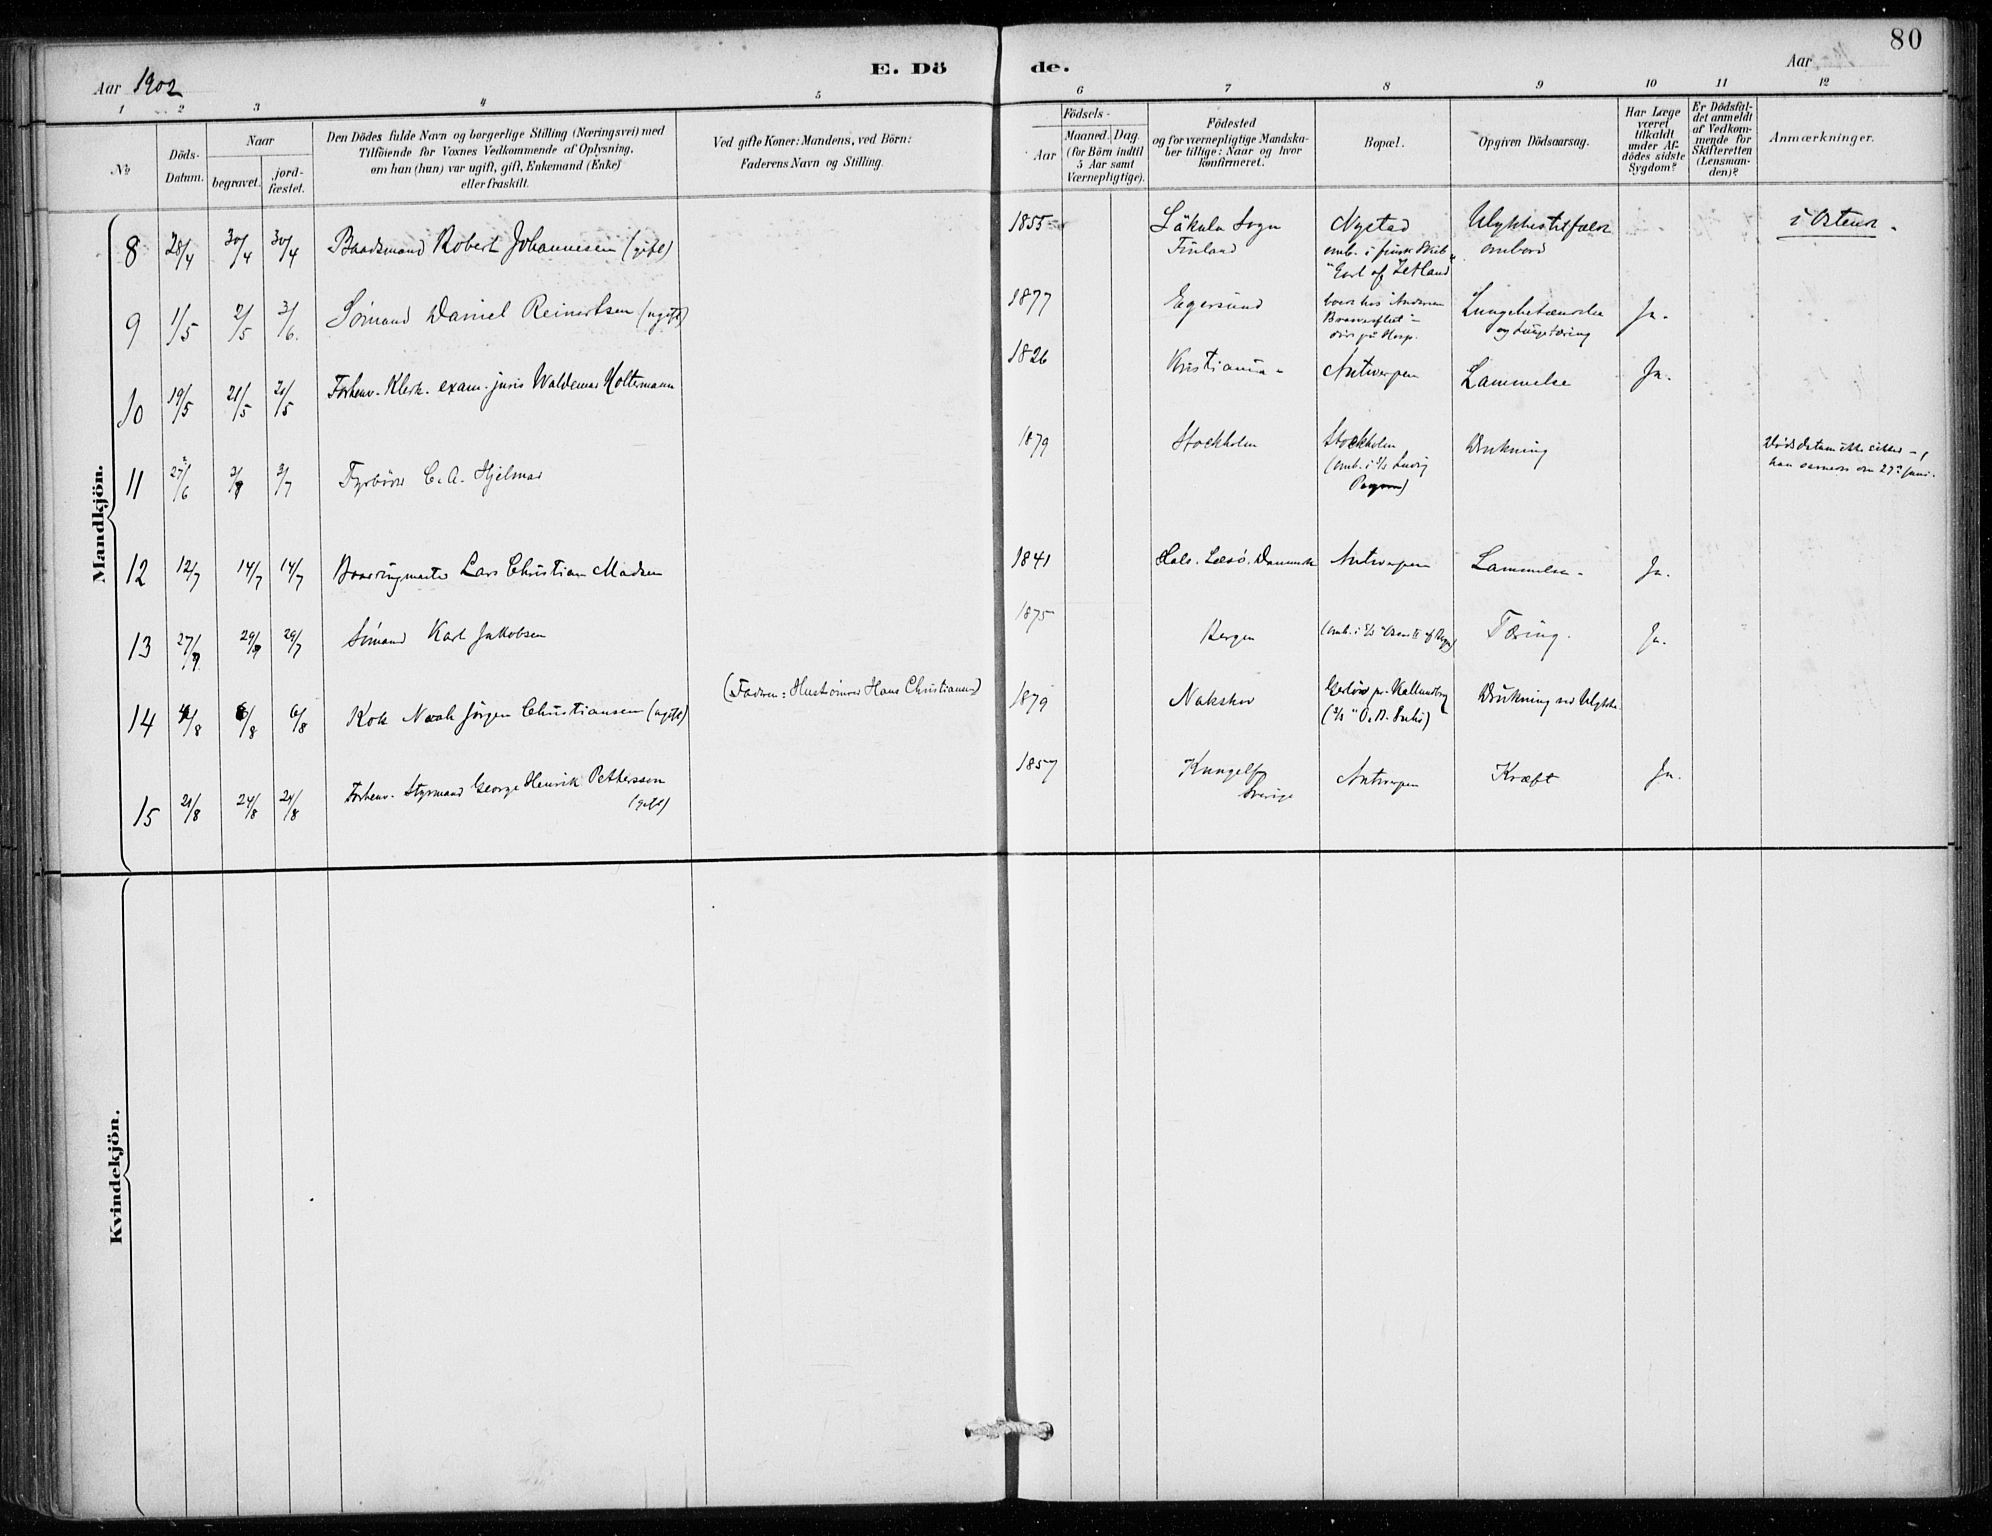 80
Aar 1902
E. Dö
de.
Aar
1 2 3 4 5 6 7 8 9 10 11 12
№
Döds-
Datum.
Naar
begravet.
jord-
fæstet.
Den Dödes fulde Navn og borgerlige Stilling (Næringsvei) med
Tilföiende for Voxnes Vedkommende af Oplysning,
om han (hun) var ugift, gift, Enkemand (Enke)
eller fraskilt.
Ved gifte Koner: Mandens, ved Börn:
Faderens Navn og Stilling.
Födsels-
Aar
Maaned. Dag.
(for Börn indtil
5 Aar samt
Værnepligtige).
Födested
og for værnepligtige Mandska-
ber tillige: Naar og hvor
konfirmeret.
Bopæl.
Opgiven Dödsaarsag.
Har Læge
været
tilkaldt
under Af-
dödes sidste
Sygdom?
Er Dödsfal-
det anmeldt
af Vedkom-
mende for
Skifteretten
(Lensman-
den)?
Anmærkninger.
Mandkjön.
8 28/4 30/4 30/4 Baadsmand Robert Johannesen (gift) 1855 Säkula Sogn Nystad Ulykkestilfælde i Ostende.
Finland omb. i finsk Skib ombord
"Earl of Zetland"
9 1/5 2/5 3/6. Sömand Daniel Reinertsen (ugift) 1877 Egersund Lungebetændelse Ja.
og Lungetæring
död på Hosp.
10 19/5 21/5 21/5 Forhenv. Klerk. exam. juris Waldemar Holtermann 1826 Kristiania Antwerpen Lammelse Ja.
11 27/6 3/7 3/7 Fyrböder C. A. Hjelmar 1879 Stockholm Stockholm Drukning Dödsdatum ikke sikker -,
(omb. i S/S Ludvig han savnedes den 27de Juni.
12 12/7 14/7 14/7 Lars Christian Madsen 1841 Hals. Læsö. Danmark Antwerpen Lammelse Ja.
13 27/7 29/7 29/7 Sömand Karl Jakobsen 1875 Bergen Tæring. Ja.
14 4/8 6/8 6/8 Kok Noah Jörgen Christiansen (ugift) (Faderen: Hustömrer Hans Christiansen) 1879 Nakskov Gerlöv pr. Kallundborg Drukning ved Ulykke
15 21/8 24/8 24/8 Forhenv. Styrmand George Henrik Pettersson 1857 Kungelf Antwerpen Kræft Ja.
(gift) Sverige
Kvindekjön.